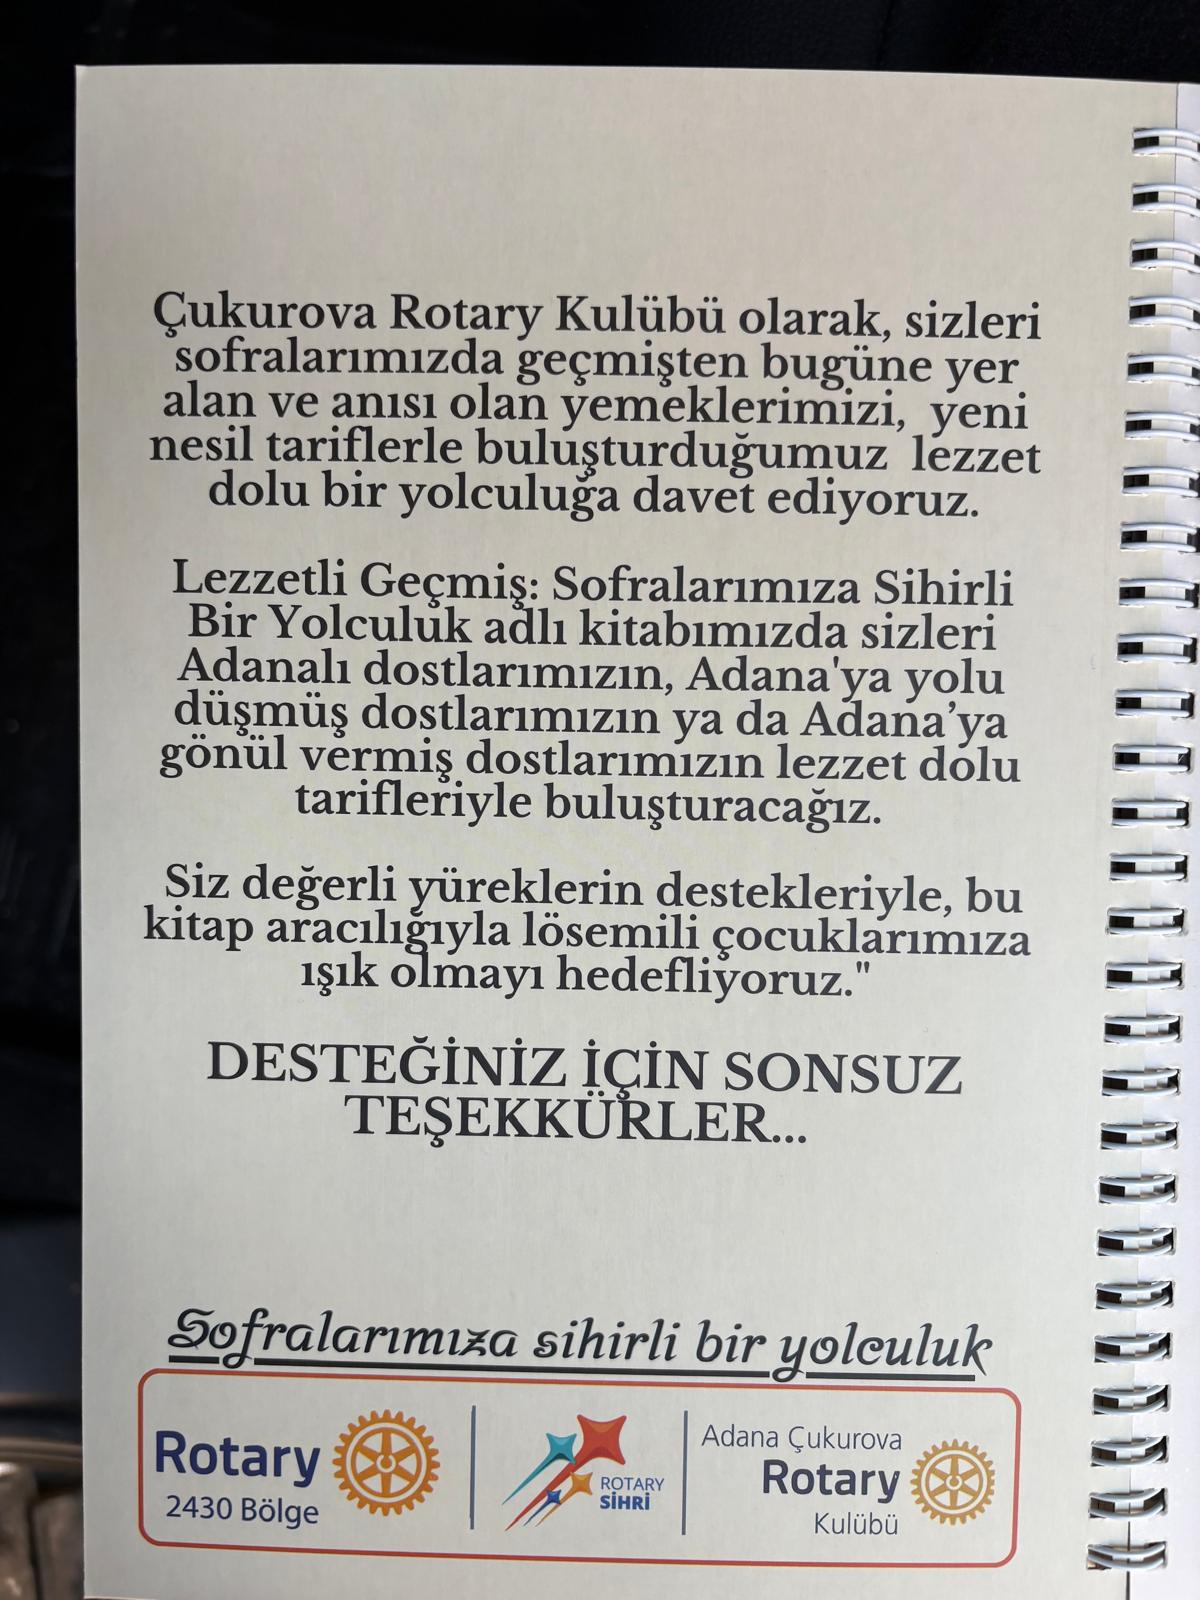 Çukurova Rotary Kulübü olarak, sizleri
sofralarımızda geçmişten bugüne yer
alan ve anısı olan yemeklerimizi, yeni
nesil tariflerle buluşturduğumuz lezzet
dolu bir yolculuğa davet ediyoruz.
Lezzetli Geçmiş: Sofralarımıza Sihirli
Bir Yolculuk adlı kitabımızda sizleri
Adanalı dostlarımızın, Adana'ya yolu
düşmüş dostlarımızın ya da Adana’ya
gönül vermiş dostlarımızın lezzet dolu
tarifleriyle buluşturacağız.
Siz değerli yüreklerin destekleriyle, bu
kitap aracılığıyla lösemili çocuklarımıza
ışık olmayı hedefliyoruz."
DESTEĞİNİZ İÇİN SONSUZ
TEŞEKKÜRLER...
Sofralarımıza sihirli bir yolculuk
Rotary
2430 Bölge
ROTARY
SİHRİ
Adana Çukurova
Rotary
Kulübü